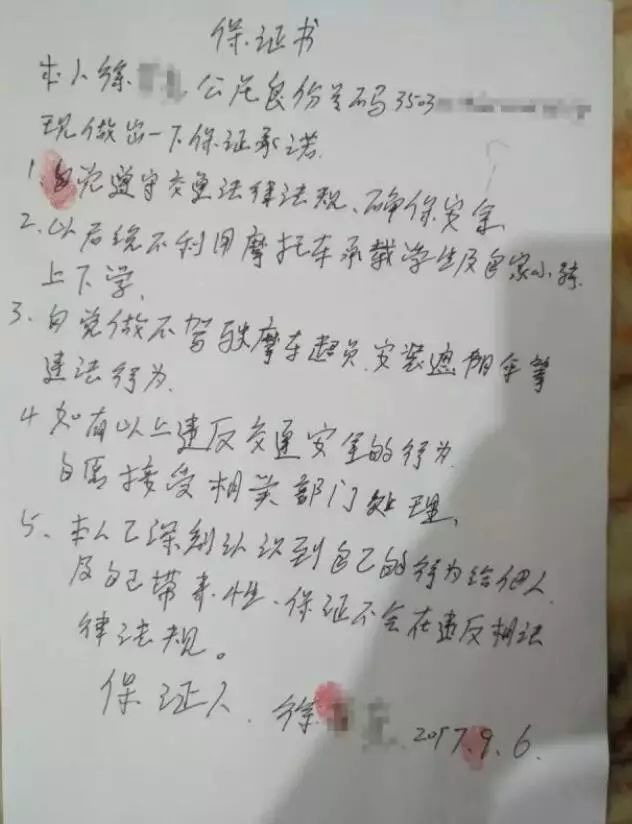 保证书
本人徐 公民身份证号码3503
现做出一下保证承诺.
1.自觉遵守交通法律法规、确保安全
2.以后绝不利用摩托车承载学生及自家小孩
上下学、
3、自觉做不驾驶摩车超员.安装遮阳伞等
违法行为.
4 如有以上违反交通安全的行为.
自愿接受相关部门处理、
5、本人已深刻认识到自己的行为给他人
及自己带来 性、保证不会在违反相法
律法规。
保证人.徐 2017.9.6.